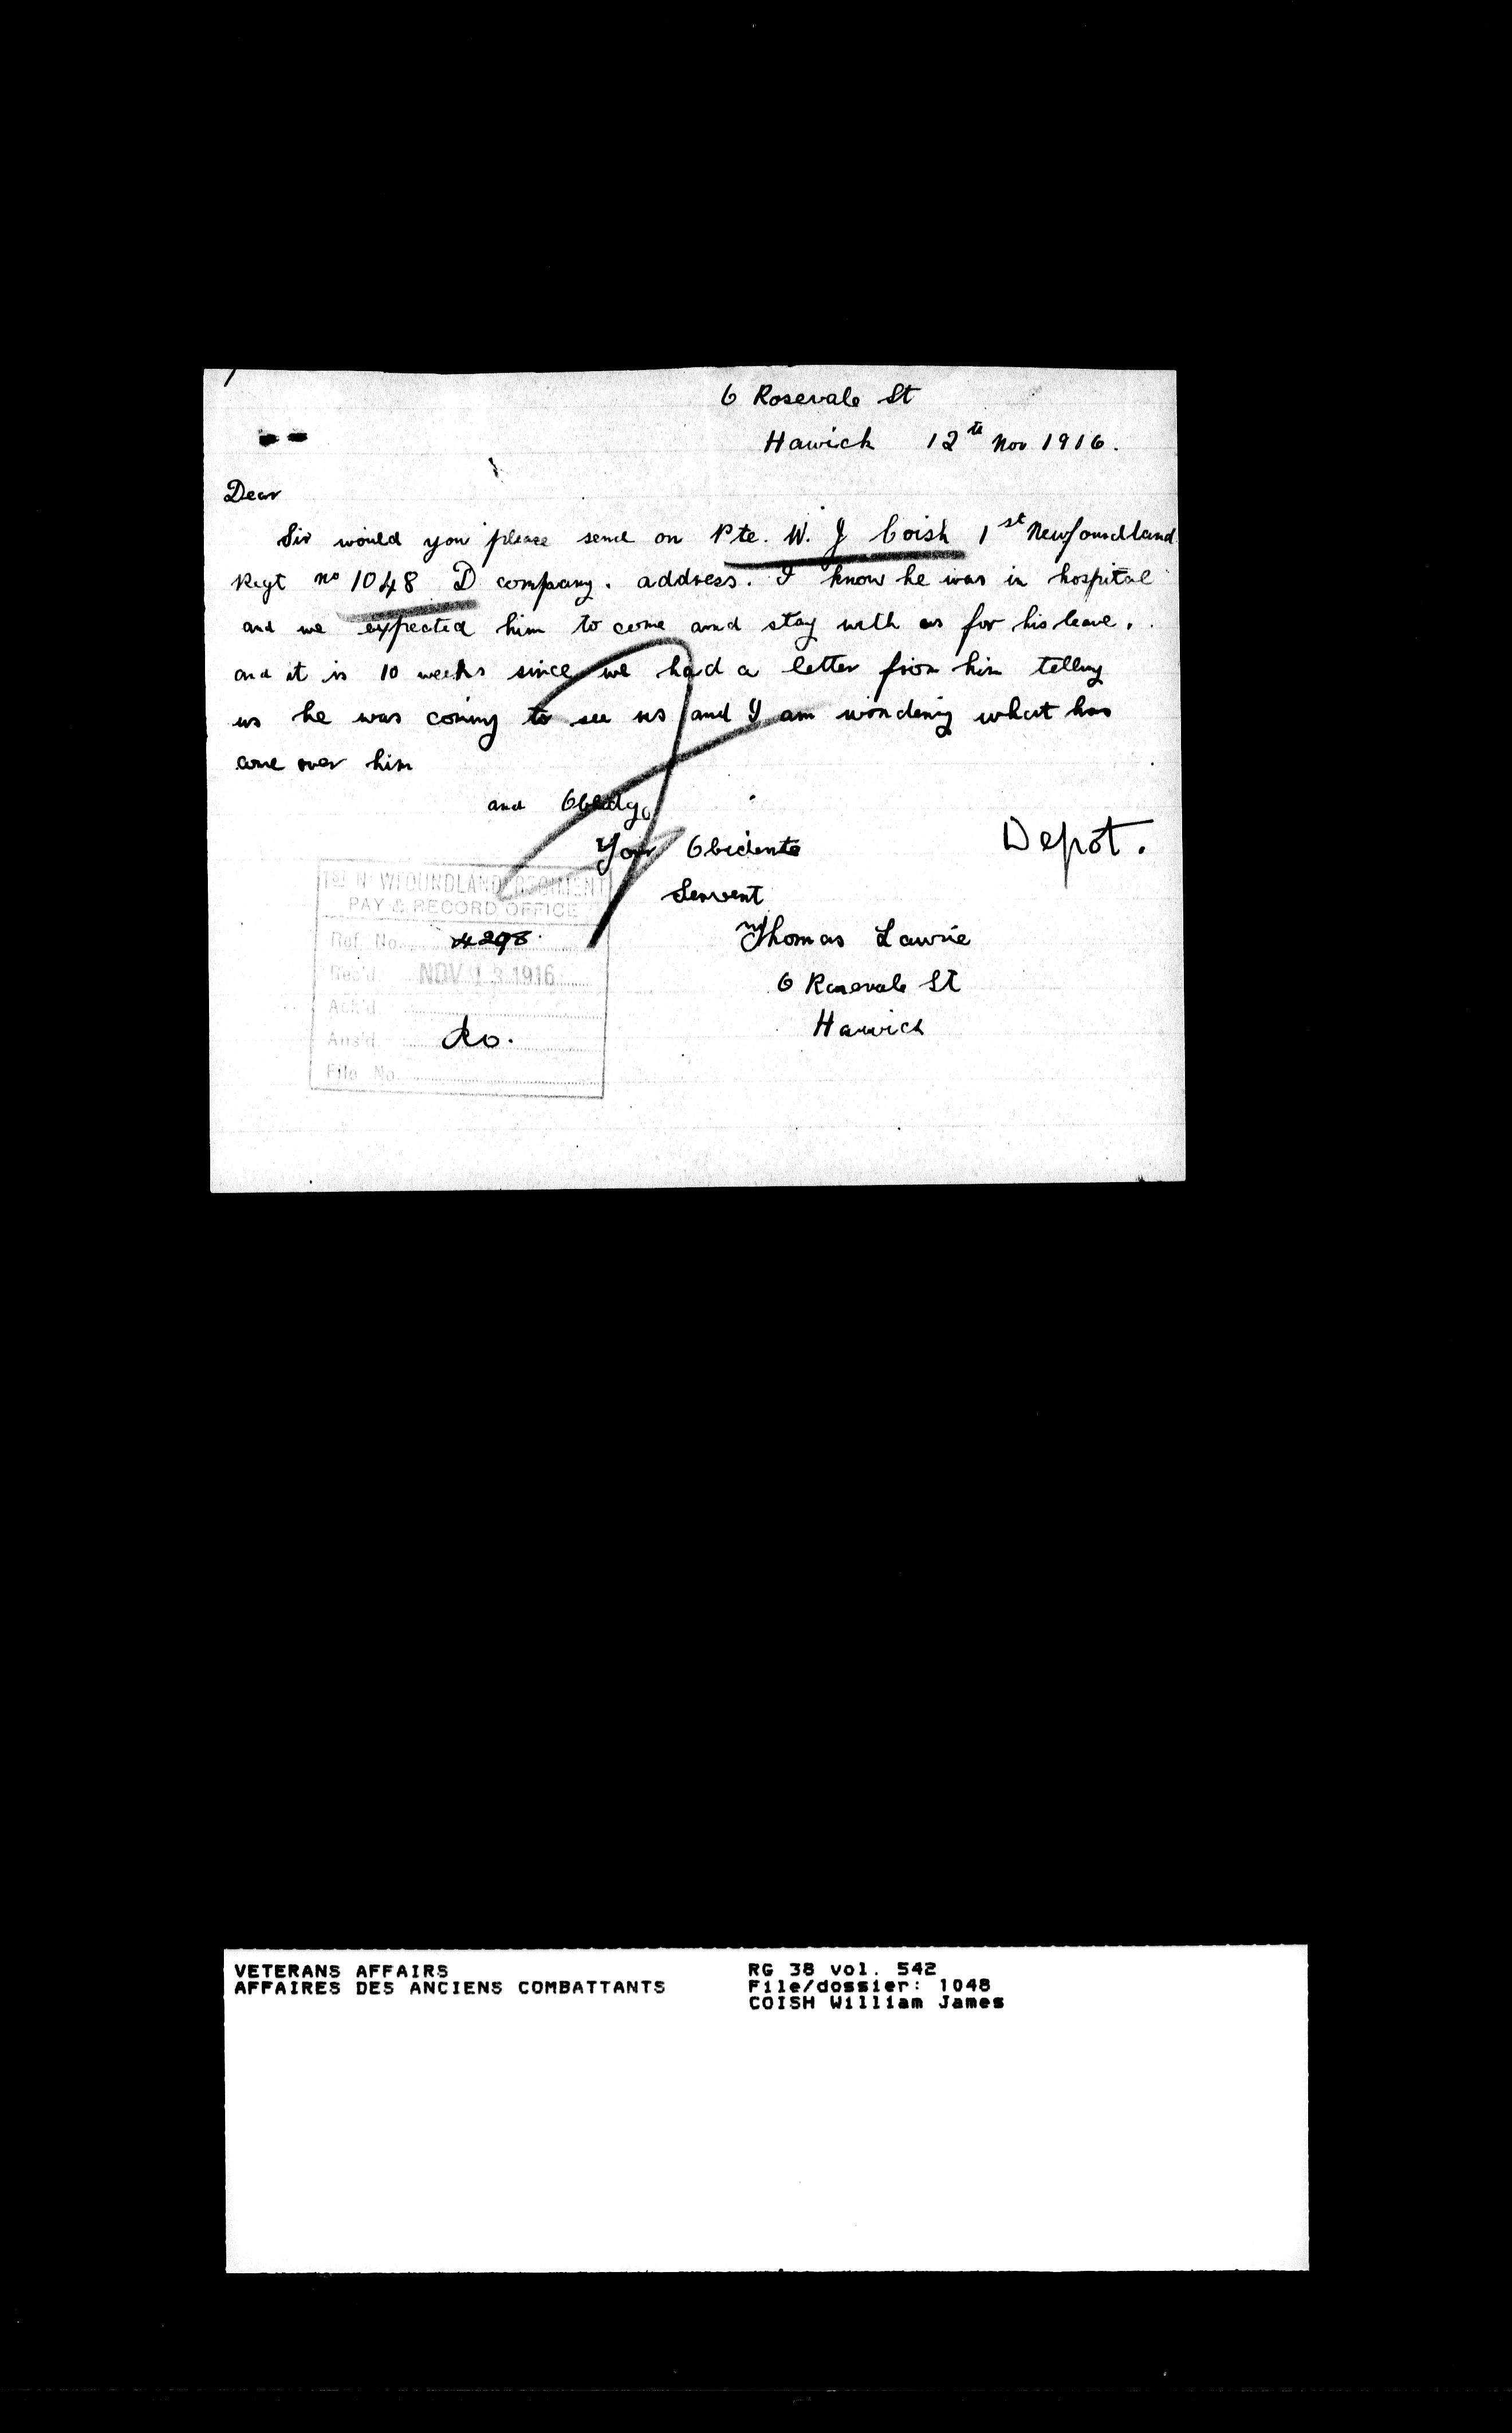 6 Rosevale St
Hawick 12th Nov 1916.
Dear
Sir would you please send on Pte. W. J Coish 1st Newfoundland
Regt no 1048 D company. address. I know he was in hospital
and we expected him to come and stay with us for his leave.
and it is 10 weeks since we had a letter from him telling
us he was coming to see us and I am wondering what has
come over him
and Obledg
Your Obidente
Servent
Thomas Lawrie
6 Rosevale St
Hawick
Depot.
1st NEWFOUNDLAND REGIMENT
PAY & RECORD OFFICE
Ref. No. 4298.
Rec'd. NOV 13 1916
Ack'd.
Ans'd.
File No.
VETERANS AFFAIRS
AFFAIRES DES ANCIENS COMBATTANTS
RG 38 vol. 542
File/dossier: 1048
COISH William James